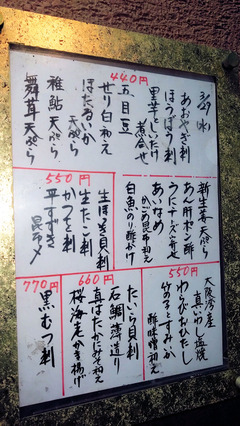 3/29(水)
440円
あおやぎ刺
ほうぼう刺
里芋としいたけ
煮合せ
五目豆
せり白和え
ほたるいか
天ぷら
稚鮎天ぷら
舞茸天ぷら
新生姜天ぷら
あん肝ポン酢
うにチーズ寄せ
あいなめ
かごめ昆布和え
白魚のり酢がけ
550円
生ほたて刺
生たこ刺
かつを刺
平すずき
昆布〆
550円
大阪湾産
真いわし塩焼
わらびおひたし
竹の子とすみいか
酢味噌和え
660円
たいら貝刺
石鯛薄造り
真はたかに身和え
桜海老かき揚げ
770円
黒むつ刺